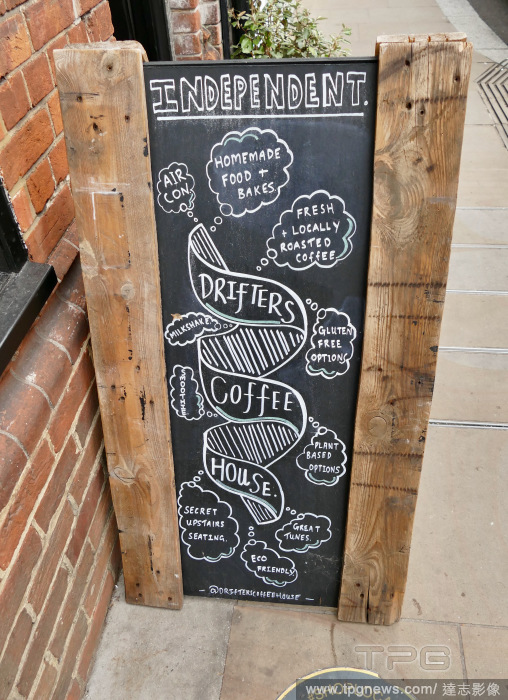 INDEPENDENT.
AIR
CON
HOMEMADE
FOOD +
BAKES
FRESH
+ LOCALLY
ROASTED
COFFEE
DRIFTERS
MILKSHAKES
GLUTEN
FREE
OPTIONS
SMOOTHIES
COFFEE
PLANT
BASED
OPTIONS
HOUSE.
SECRET
UPSTAIRS
SEATING.
GREAT
TUNES.
ECO
FRIENDLY
- @DRIFTERSCOFFEEHOUSE -
TPG
www.tpgnews.com/ 達志影像